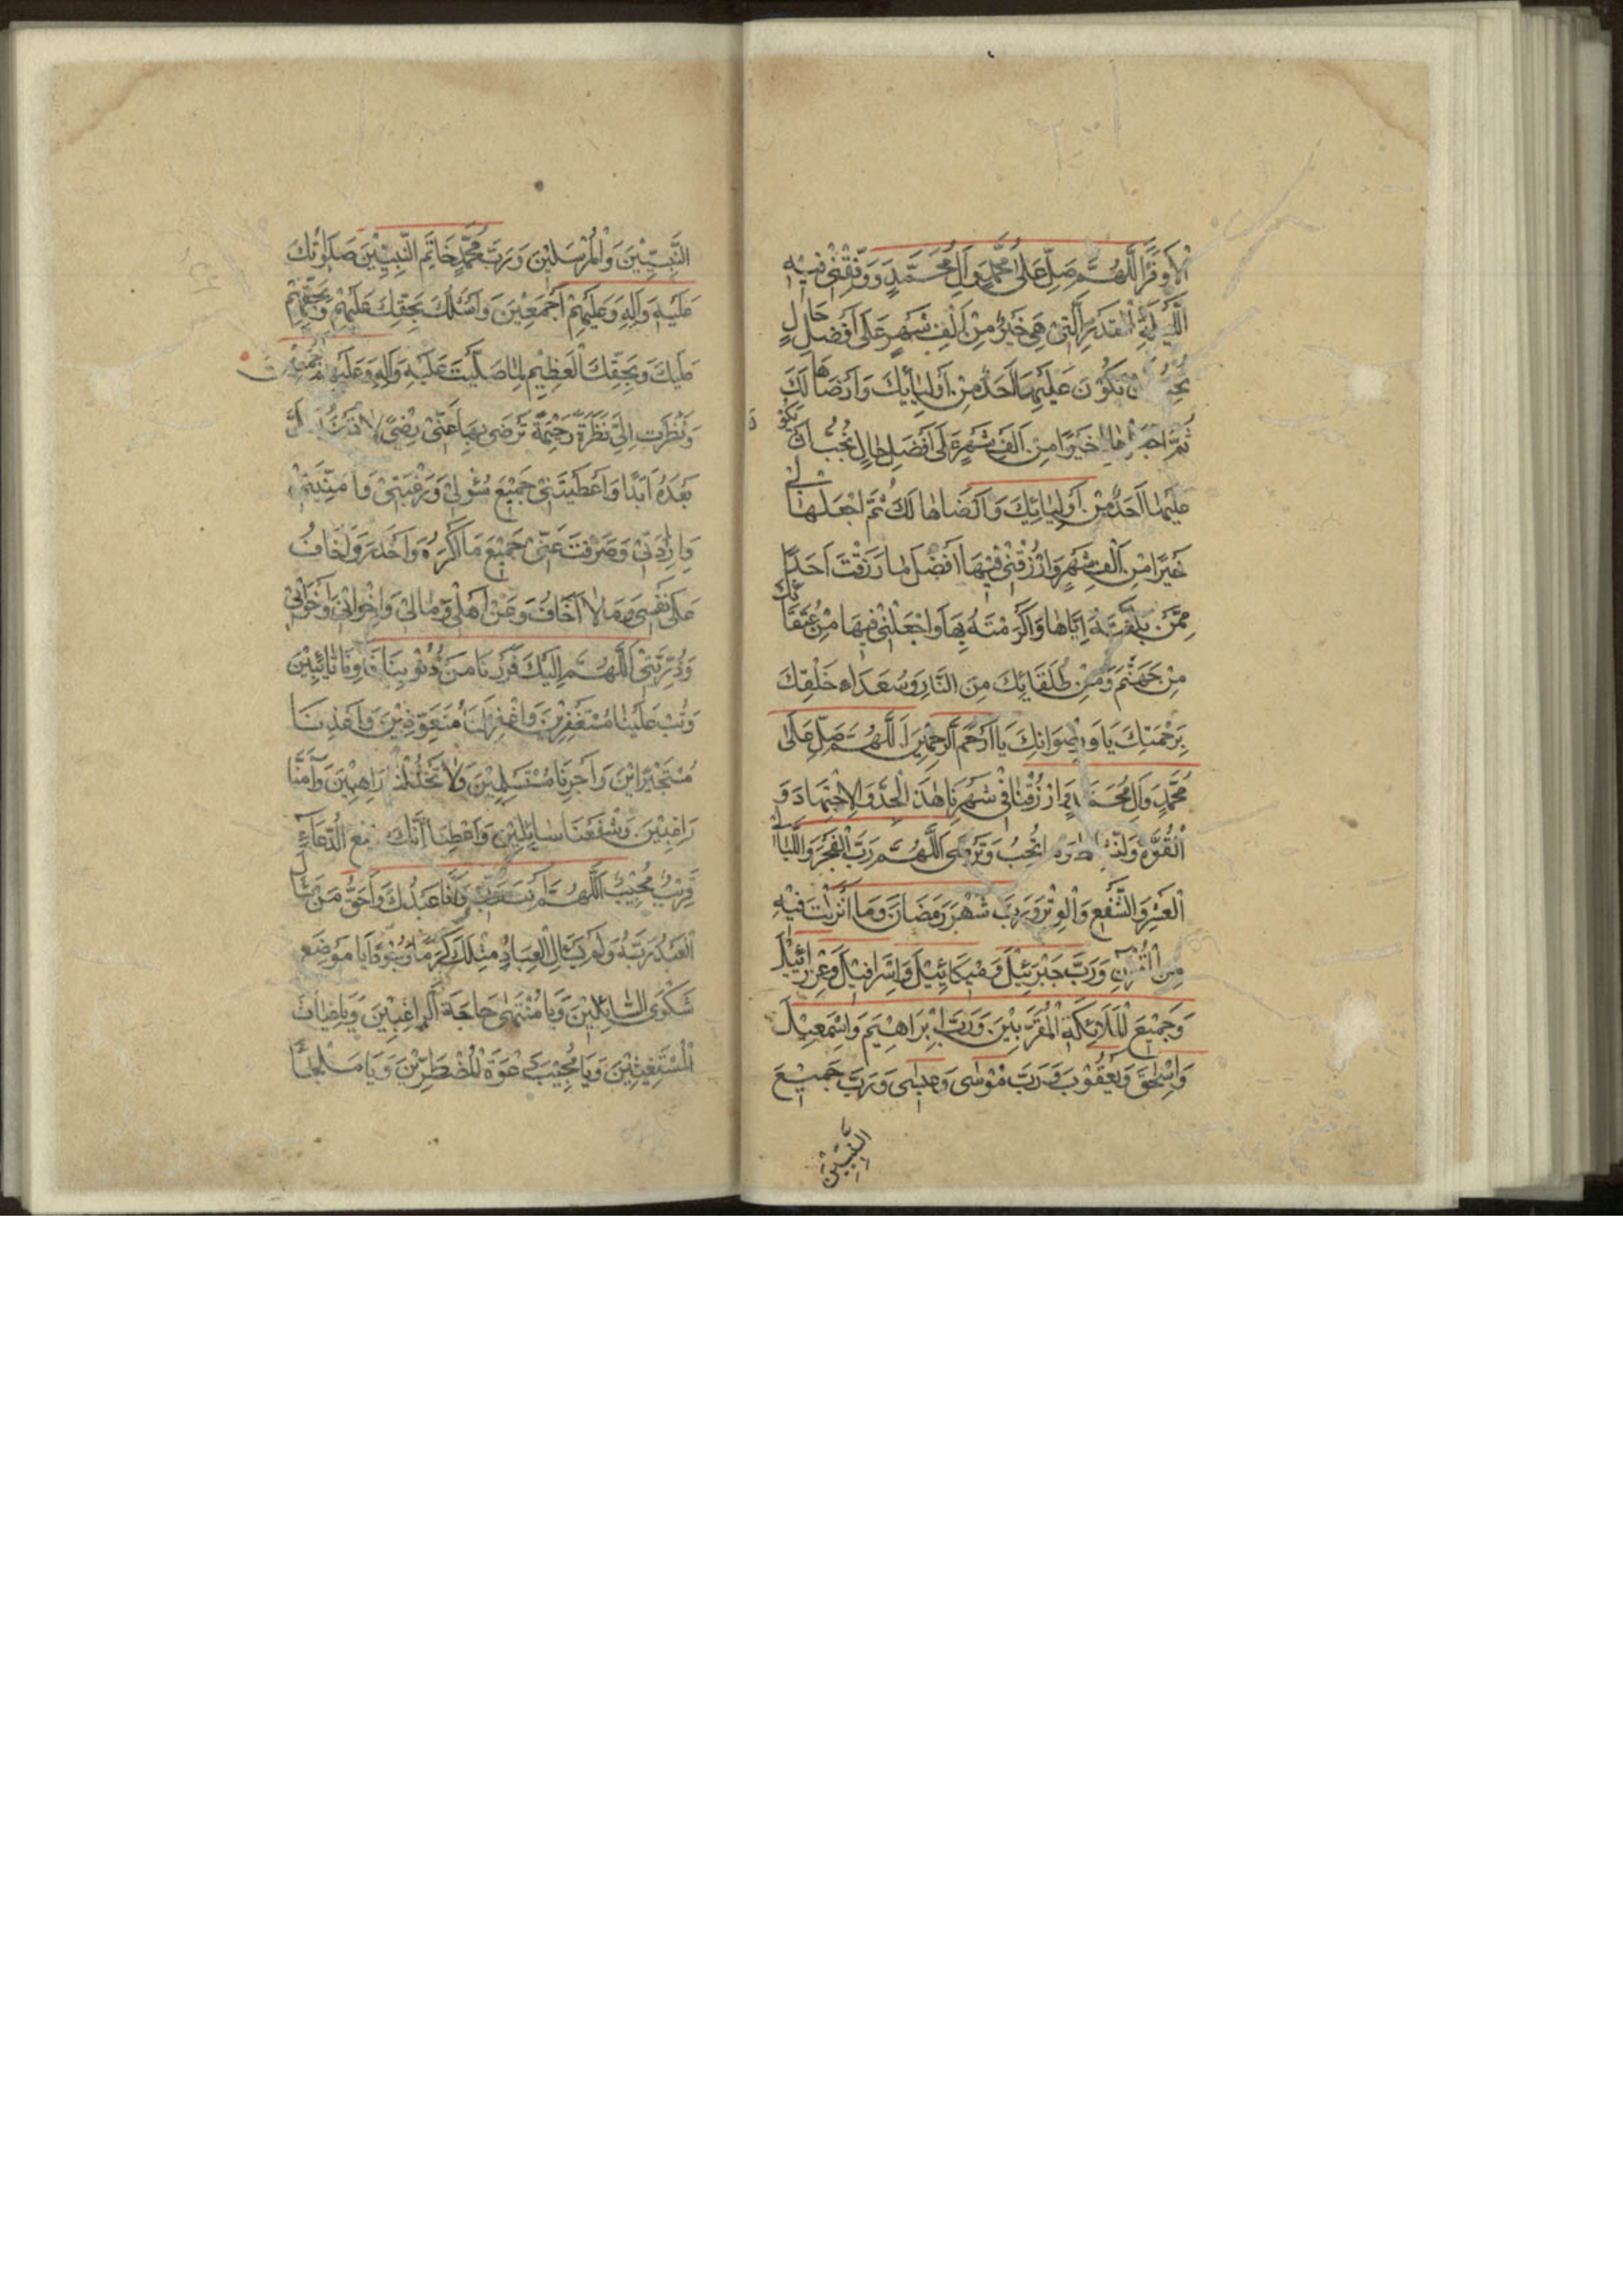 الْأَوْفَرَ اللَّهُمَّ صَلِّ عَلَى مُحَمَّدٍ وَآلِ مُحَمَّدٍ وَوَفِّقْنِي فِيهِ
اللَّيْلَةِ الْقَدْرِ الَّتِي هِيَ خَيْرٌ مِنْ أَلْفِ شَهْرٍ عَلَى أَفْضَلِ حَالٍ
تَكُونَ عَلَيْهَا أَحَدٌ مِنْ أَوْلِيَائِكَ وَأَرْضَاهَا لَكَ
ثُمَّ خَيْرًا مِنْ أَلْفِ شَهْرٍ عَلَى أَفْضَلِ حَالٍ تُحِبُّ أَنْ يَكُونَ
عَلَيْهَا أَحَدٌ مِنْ أَوْلِيَائِكَ وَأَرْضَاهَا لَكَ ثُمَّ اجْعَلْهَا لِي
خَيْرًا مِنْ أَلْفِ شَهْرٍ وَارْزُقْنِي فِيهَا أَفْضَلَ مَا رَزَقْتَ أَحَدًا
مِمَّنْ بَلَّغْتَهُ إِيَّاهَا وَأَكْرَمْتَهُ بِهَا وَاجْعَلْنِي فِيهَا مِنْ عُتَقَائِكَ
مِنْ جَهَنَّمَ وَمِنْ طُلَقَائِكَ مِنَ النَّارِ وَسُعَدَاءِ خَلْقِكَ
بِرَحْمَتِكَ يَا وَرِضْوَانِكَ يَا أَرْحَمَ الرَّاحِمِينَ اللَّهُمَّ صَلِّ عَلَى
مُحَمَّدٍ وَآلِ مُحَمَّدٍ وَارْزُقْنَا فِي شَهْرِنَا هَذَا الْجِدَّ وَالِاجْتِهَادَ وَ
الْقُوَّةَ وَ تُحِبُّ وَتَرْضَى اللَّهُمَّ رَبَّ الْفَجْرِ وَاللَّيَالِي
الْعَشْرِ وَالشَّفْعِ وَالْوِتْرِ وَرَبَّ شَهْرِ رَمَضَانَ وَمَا أَنْزَلْتَ فِيهِ
مِنَ الْقُرْآنِ وَرَبَّ جَبْرَئِيلَ وَمِيكَائِيلَ وَإِسْرَافِيلَ وَعِزْرَائِيلَ
وَجَمِيعَ الْمَلَائِكَةِ الْمُقَرَّبِينَ وَرَبَّ إِبْرَاهِيمَ وَإِسْمَعِيلَ
وَإِسْحَقَ وَيَعْقُوبَ وَرَبَّ مُوسَى وَعِيسَى وَرَبَّ جَمِيعَ
النَّبِيِّينَ
النَّبِيِّينَ وَالْمُرْسَلِينَ وَرَبَّ مُحَمَّدٍ خَاتَمِ النَّبِيِّينَ صَلَوَاتُكَ
عَلَيْهِ وَآلِهِ وَعَلَيْهِمْ أَجْمَعِينَ وَأَسْئَلُكَ بِحَقِّكَ عَلَيْهِمْ وَبِحَقِّهِمْ
عَلَيْكَ وَبِحَقِّكَ الْعَظِيمِ لَمَّا صَلَّيْتَ عَلَيْهِ وَآلِهِ وَعَلَيْهِمْ
وَنَظَرْتَ إِلَيَّ نَظْرَةً رَحِيمَةً تَرْضَى بِهَا عَنِّي رِضًى لَا
بَعْدَهُ أَبَدًا وَأَعْطَيْتَنِي جَمِيعَ سُؤْلِي وَرَغْبَتِي وَأُمْنِيَّتِي
وَإِرَادَتِي وَصَرَفْتَ عَنِّي جَمِيعَ مَا أَكْرَهُ وَأَحْذَرُ وَأَخَافُ
عَلَى نَفْسِي وَمَا لَا أَخَافُ وَعَنْ أَهْلِي وَمَالِي وَإِخْوَانِي وَأَخَوَاتِي
وَذُرِّيَّتِي اللَّهُمَّ إِلَيْكَ فَرَرْنَا مِنْ ذُنُوبِنَا فَآوِنَا تَائِبِينَ
وَتُبْ عَلَيْنَا مُسْتَغْفِرِينَ وَاغْفِرْ لَنَا مُتَعَوِّذِينَ وَأَعِذْنَا
مُسْتَجِيرِينَ وَأَجِرْنَا مُسْتَسْلِمِينَ وَلَا تَخْذُلْنَا رَاهِبِينَ وَآمِنَّا
رَاغِبِينَ وَشَفِّعْنَا سَائِلِينَ وَأَعْطِنَا إِنَّكَ سَمِيعُ الدُّعَاءِ
قَرِيبٌ مُجِيبٌ اللَّهُمَّ أَنْتَ رَبِّي وَأَنَا عَبْدُكَ وَأَحَقُّ مَنْ سَأَلَ
الْعَبْدُ رَبَّهُ وَلَمْ يَسْأَلِ الْعِبَادُ مِثْلَكَ كَرَمًا وَجُودًا يَا مَوْضِعَ
شَكْوَى السَّائِلِينَ وَيَا مُنْتَهَى حَاجَةِ الرَّاغِبِينَ وَيَا غِيَاثَ
الْمُسْتَغِيثِينَ وَيَا مُجِيبَ دَعْوَةِ الْمُضْطَرِّينَ وَيَا مَلْجَأَ